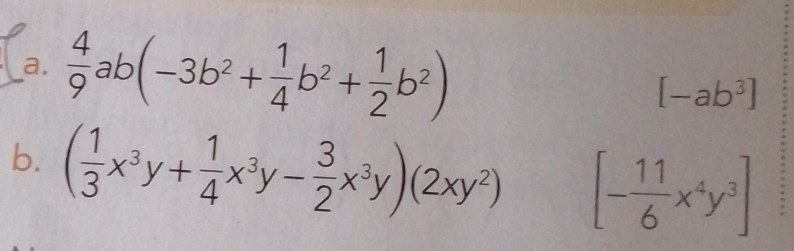 a. 4/9 ab(−3b² + 1/4 b² + 1/2 b²) [−ab³]
b. (1/3 x³y + 1/4 x³y − 3/2 x³y)(2xy²) [−11/6 x⁴y³]